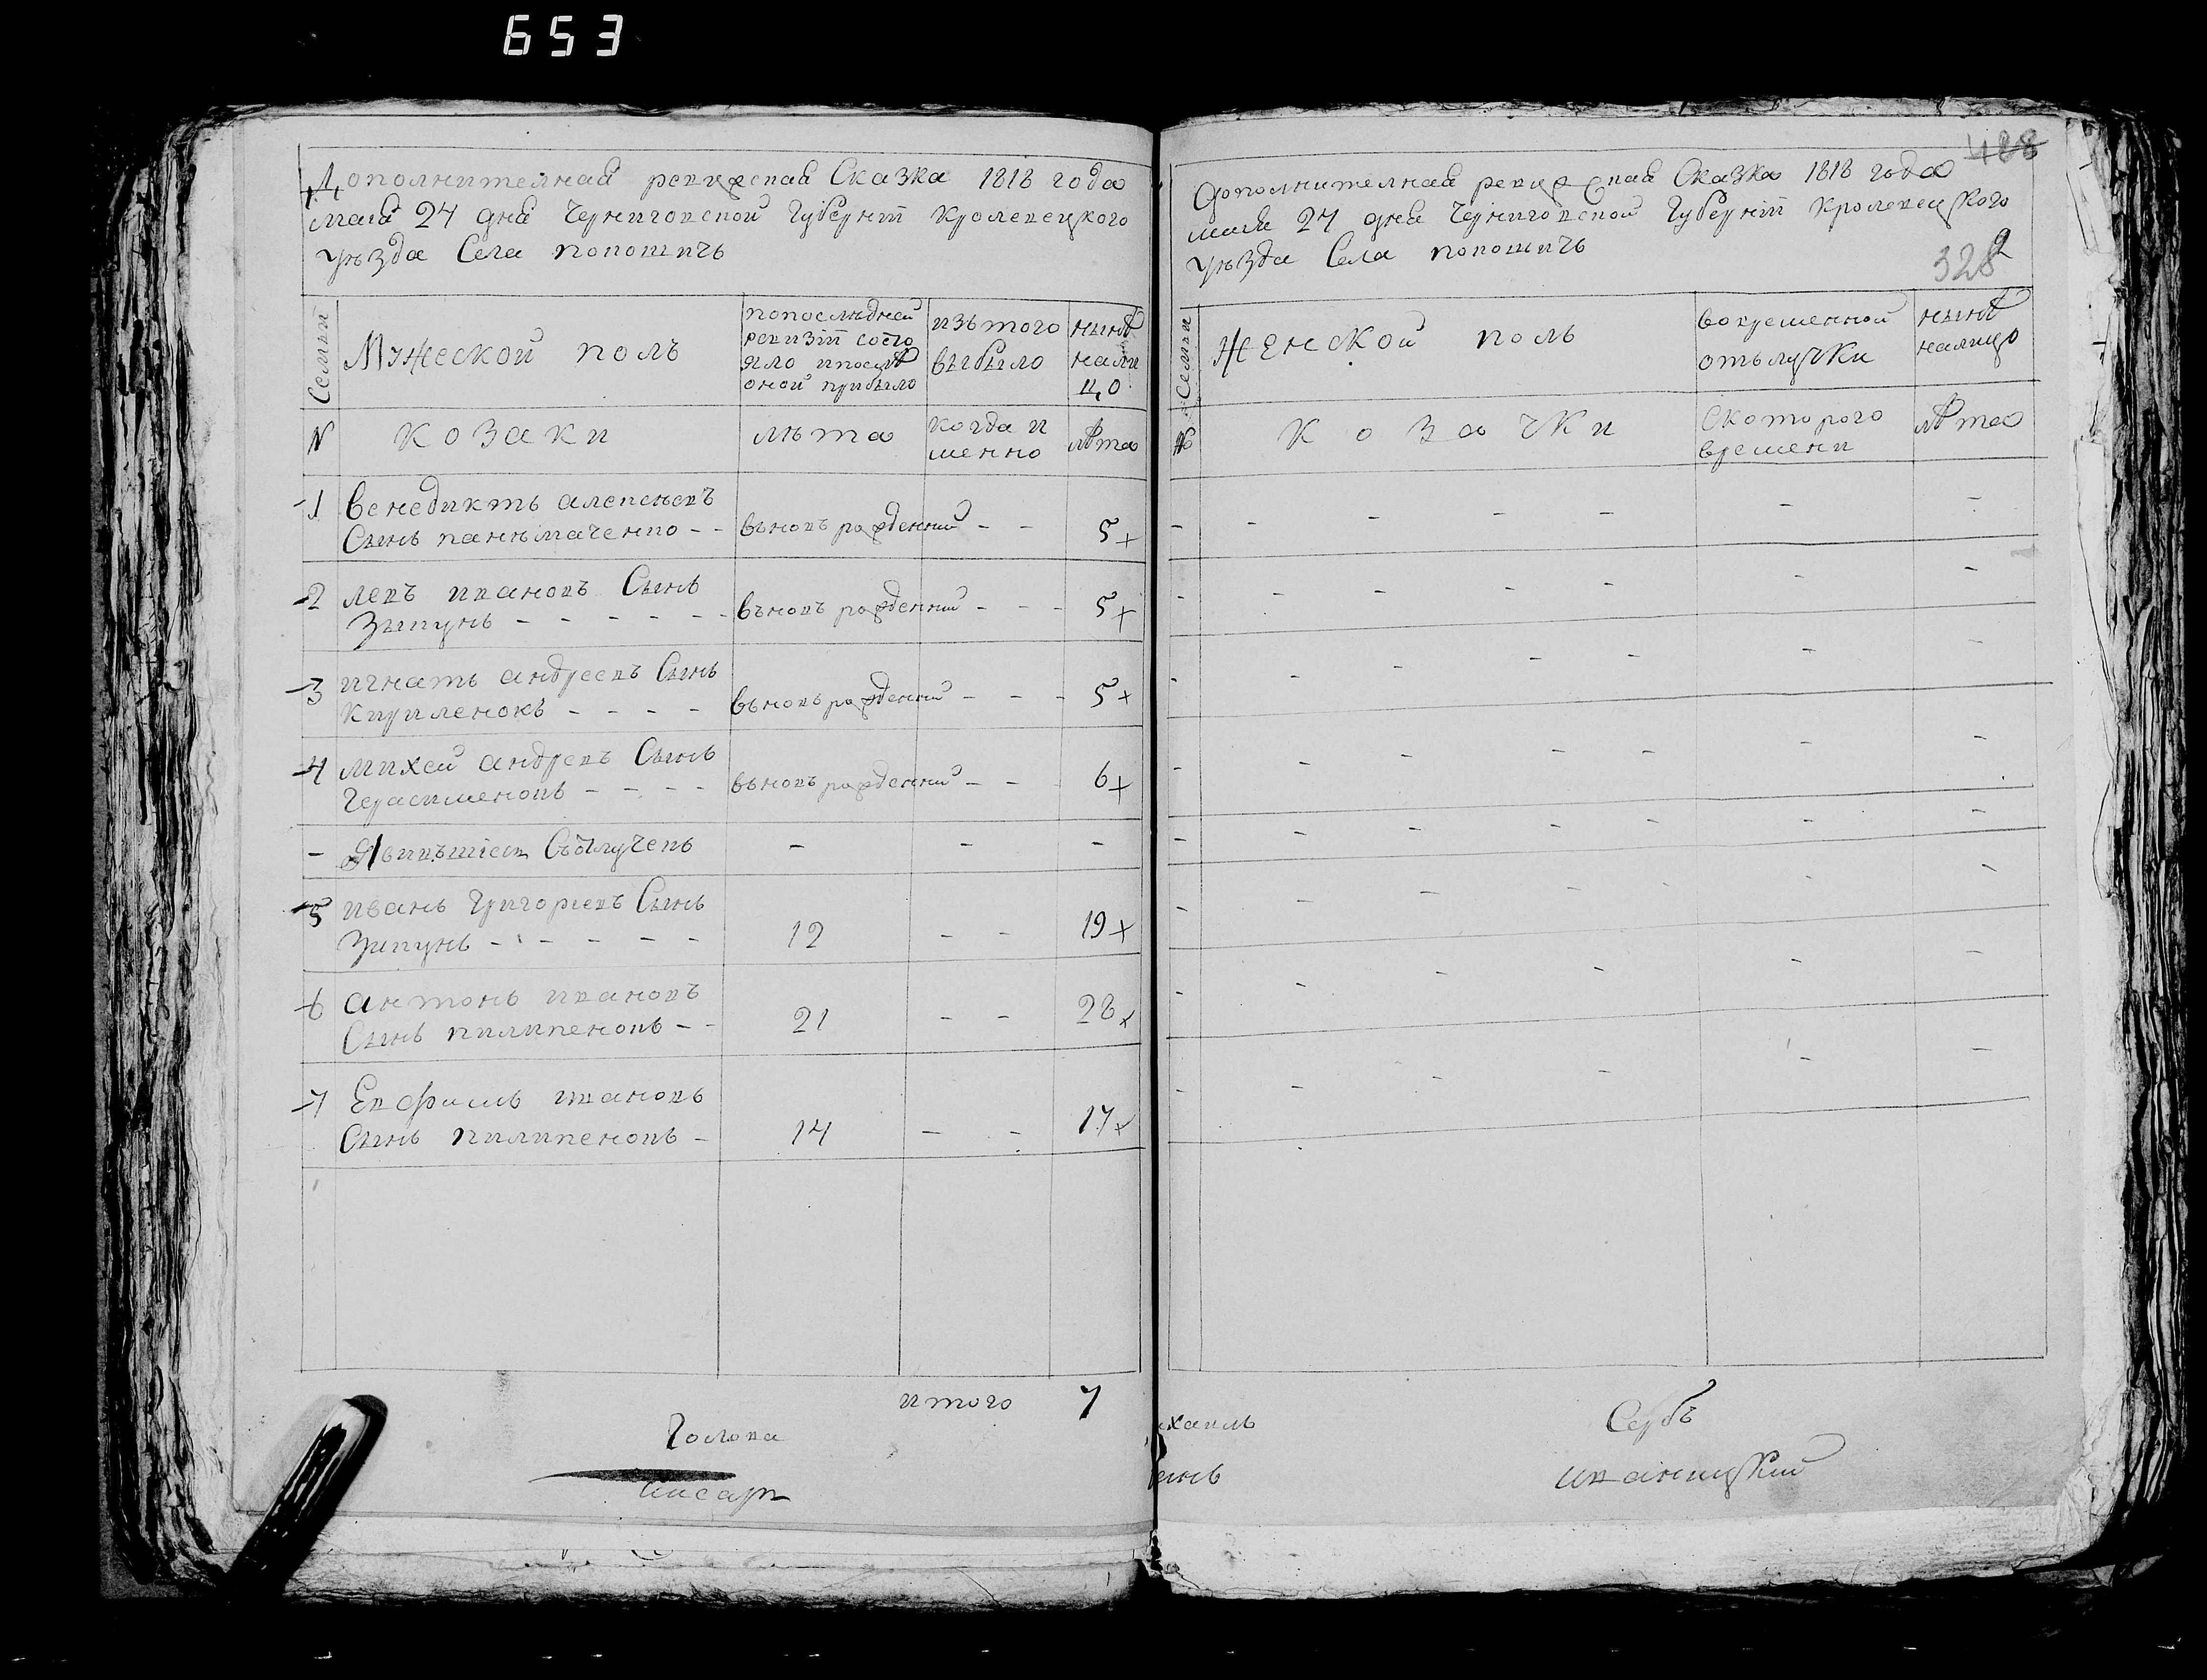 653
Дополнителная ревижская Сказка 1818 года
мая 24 дня Черниговской Губерніи Кролевецкого
уѣзда Села Поношичъ
Семьи
Мужеской полъ
попослѣдней
ревизіи состо
яло ипослѣ
оной прибыло
изътого
выбыло
нынѣ
нали
цо
N
козаки
лѣта
когда и
менно
лѣта
1
Венедиктъ алексѣевъ
Сынъ панѣмаченко - -
вьновь рожденний - -
5+
2
левъ ивановъ Сынъ
Зипунъ - - - - - -
вьновь рожденний - - -
5+
3
игнатъ андреевъ Сынъ
Кириленокъ - - - -
вьновь рожденний - - -
5+
4
михей андревъ Сынъ
Герасименокъ - - - -
вьновь рожденний - - -
6+
- Явившіеся Сотлучекъ - - -
5
иванъ Григориевъ Сынъ
Зипунъ - - - - -
12 - - 19+
6
антонъ ивановъ
Сынъ пилипенокъ - -
21 - - 28+
7
Евфимъ ивановъ
Сынъ пилипенокъ -
14 - - 17+
итого 7
Голова
Писарь
488
Дополнителная ревижская Сказка 1818 года
мая 24 дня Черниговской Губерніи Кролевецкого
уѣзда Села Поношичъ
328
Семьи
Женской полъ
вовременной
отълучки
нынѣ
налицо
№
козачки
Скоторого
времени
лѣта
ихаилъ Сербъ
инъ иваницкий